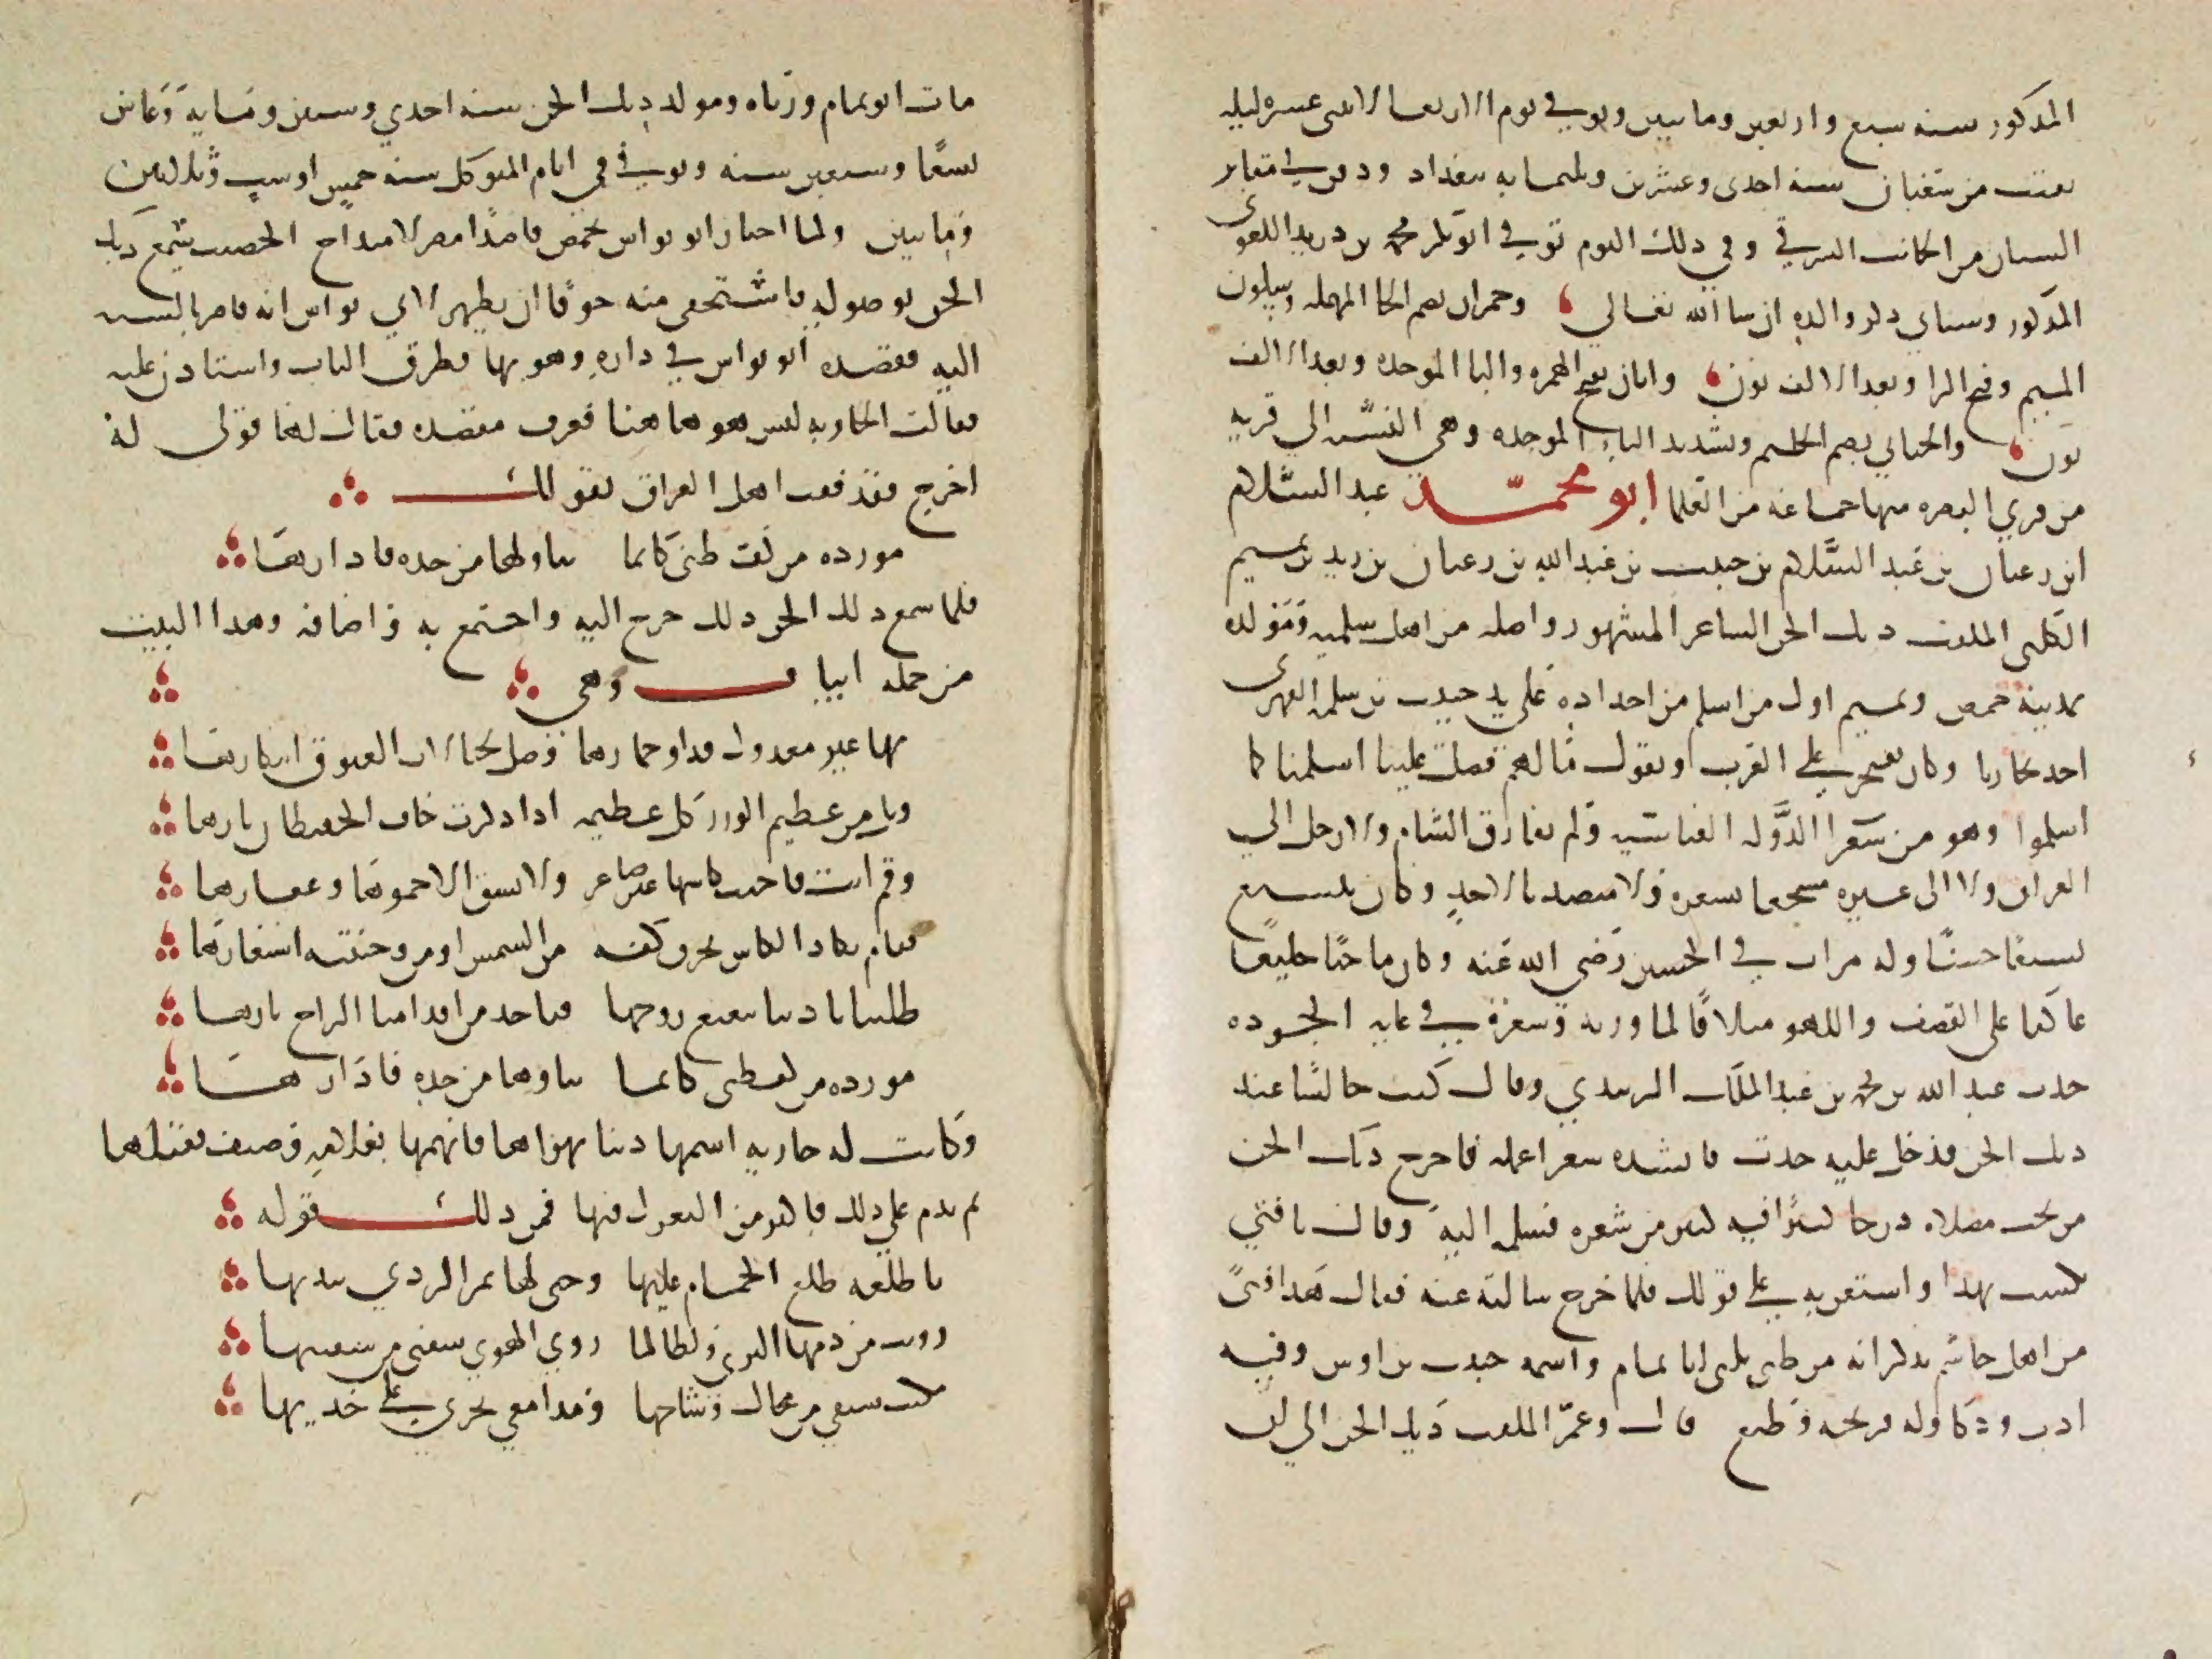 المذكور سنة سبع واربعين ومايتين وتوفي يوم الاربعا لاثنتي عشرة ليلة
بقيت من شعبان سنة احدى وعشرين وثلثماية ببغداد ودفن في مقابر
البستان من الجانب الشرقي وفي ذلك اليوم توفي ابو بكر محمد بن دريد اللغوي
المذكور وسياتي ذكر والده ان شا الله تعالى وحمران بضم الحا المهملة وسكون
الميم وفتح الرا وبعد الالف نون وابان بفتح الهمزة والبا الموحدة وبعد الالف
نون والجبائي بضم الجيم وتشديد البا الموحدة وهي النسبة الى قرية
من قرى البصرة منها جماعة من العلما ابو محمد عبد السلام
ابن رغبان بن عبد السلام بن حبيب بن عبد الله بن رغبان بن زيد بن تميم
الكلبي الملقب ديك الجن الشاعر المشهور واصله من اهل سلمية ومولده
بمدينة حمص وتميم اول من اسلم من اجداده على يد حبيب بن مسلمة الفهري
اخذ محاربا وكان يفخر على العرب ويقول مالهم فضل علينا اسلمنا كما
اسلموا وهو من شعرا الدولة العباسية ولم يفارق الشام ولا رحل الى
العراق ولا الى غيره منتجعا بشعره ولا متصديا لاحد وكان يتشيع
تشيعا حسنا وله مراث في الحسين رضي الله عنه وكان ماجنا خليعا
عاكفا على القصف واللهو متلافا لما ورثه وشعره في غاية الجودة
حدث عبد الله بن محمد بن عبد الملك الزبيدي وقال كنت جالسا عند
ديك الجن فدخل عليه حدث فانشده شعرا عمله فاخرج ديك الجن
من تحت مصلاه درجا كبيرا فيه كثير من شعره فسلمه اليه وقال يا فتى
تكسب بهذا واستعن به على قولك فلما خرج سالته عنه فقال هذا فتى
من اهل جاسم يذكر انه من طي يكنى ابا تمام واسمه حبيب بن اوس وفيه
ادب وذكا وله قريحة وطبع قال وعمر الملقب ديك الجن الى ان
مات ابو تمام ورثاه ومولد ديك الجن سنة احدى وستين وماية وعاش
بضعا وسبعين سنة وتوفي في ايام المتوكل سنة خمس او ست وثلاثين
ومايتين ولما اجتاز ابو نواس بحمص قاصدا مصر لامتداح الخصيب سمع ديك
الجن بوصوله فاستخفى منه خوفا ان يظهر لابي نواس انه قاصر بالنسبة
اليه فقصده ابو نواس في داره وهو بها فطرق الباب واستاذن عليه
فقالت الجارية ليس هو هاهنا فعرف مقصده فقال لها قولي له
اخرج فقد فتنت اهل العراق بقولك
موردة من كف ظبي كانما تناولها من خده فادارها
فلما سمع ذلك الجن ذلك خرج اليه واجتمع به واضافه وهذا البيت
من جملة ابيات وهي
بها غير معذول فداو خمارها وصل بحبالات الغبوق ابتكارها
ونل من عظيم الوزر كل عظيمة اذا ذكرت خاف الحفيظان نارها
وقم انت فاحثث كاسها غير صاغر ولا تسق الا خمرها وعقارها
فقام يكاد الكاس يحرق كفه من الشمس او من وجنتيه استعارها
ظللنا بايدينا نتعتع روحها فتاخذ من اقدامنا الراح ثارها
موردة من كف ظبي كانما تناولها من خده فادارها
وكانت له جارية اسمها دنيا يهواها فاتهمها بغلامه وصيف فقتلها
ثم ندم على ذلك فاكثر من التغزل فيها فمن ذلك قوله
يا طلعة طلع الحمام عليها وجنى لها ثمر الردى بيديها
رويت من دمها الثرى ولطالما روى الهوى شفتي من شفتيها
مكنت سيفي من مجال وشاحها ومدامعي تجري على خديها